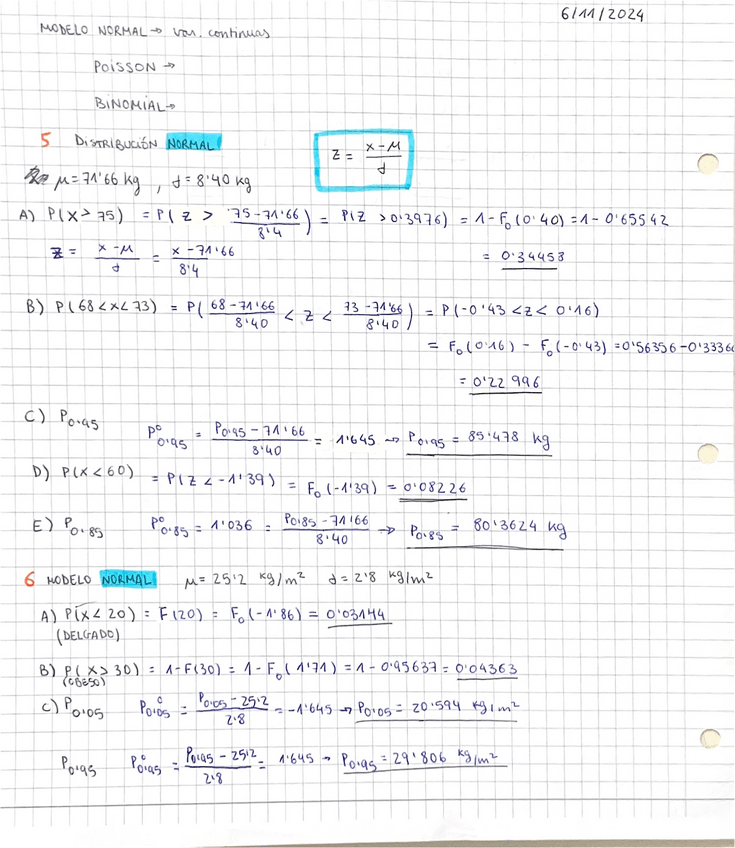 6/11/2024
MODELO NORMAL → var. continuas
POISSON →
BINOMIAL →
5 DISTRIBUCIÓN NORMAL
z = x-μ / σ
μ = 71'66 kg , σ = 8'40 kg
A) P(X > 75) = P( z > 75-71'66 / 8'4 ) = P(z > 0'3976) = 1-F₀(0'40) = 1-0'65542
z = x-μ / σ = x-71'66 / 8'4
= 0'34458
B) P(68<x<73) = P( 68-71'66 / 8'40 < z < 73-71'66 / 8'40 ) = P(-0'43 < z < 0'16)
= F₀(0'16) - F₀(-0'43) = 0'56356-0'3336
= 0'22996
C) P₀'₉₅ P⁰₀'₉₅ = P₀'₉₅ - 71'66 / 8'40 = 1'645 → P₀'₉₅ = 85'478 kg
D) P(X<60) = P(z < -1'39) = F₀(-1'39) = 0'08226
E) P₀'₈₅ P⁰₀'₈₅ = 1'036 = P₀'₈₅ - 71'66 / 8'40 → P₀'₈₅ = 80'3624 kg
6 MODELO NORMAL μ = 25'2 kg/m² σ = 2'8 kg/m²
A) P(X < 20) = F(20) = F₀(-1'86) = 0'03144
(DELGADO)
B) P(X > 30) = 1-F(30) = 1-F₀(1'71) = 1-0'95637 = 0'04363
(OBESO)
C) P₀'₀₅ P⁰₀'₀₅ = P₀'₀₅ - 25'2 / 2'8 = -1'645 → P₀'₀₅ = 20'594 kg/m²
P₀'₉₅ P⁰₀'₉₅ = P₀'₉₅ - 25'2 / 2'8 = 1'645 → P₀'₉₅ = 29'806 kg/m²